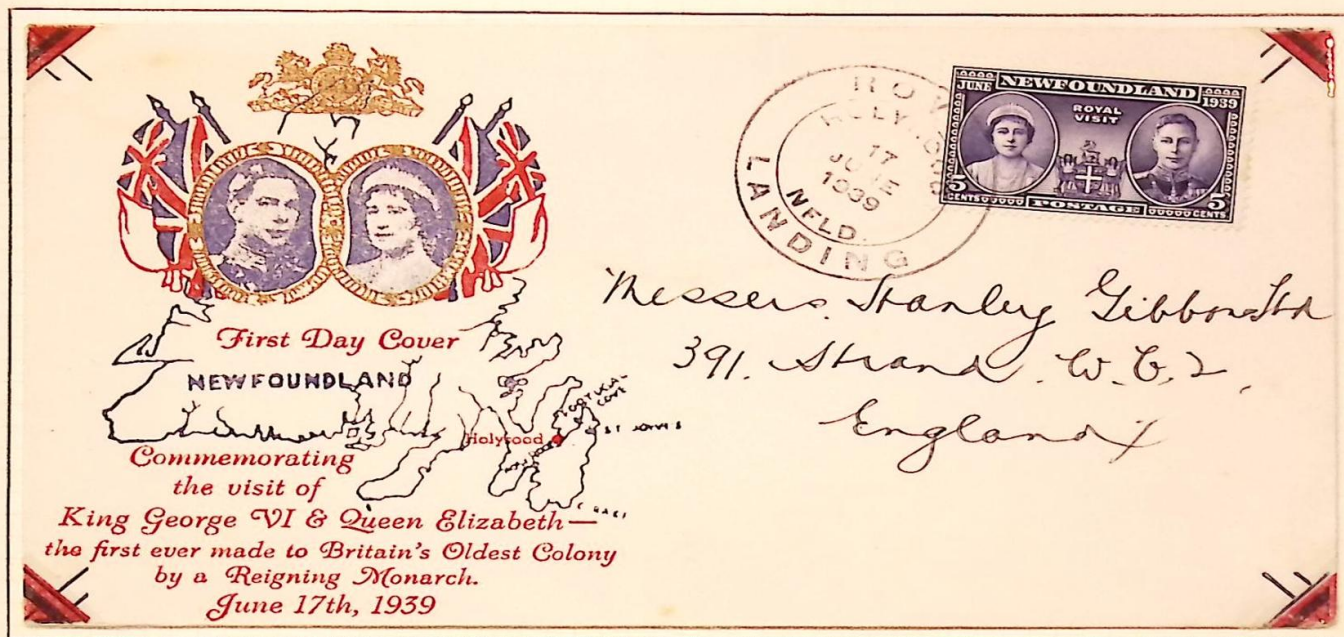 First Day Cover
NEWFOUNDLAND
Holyrood
ST JOHN'S
COVE
C RACE
Commemorating
the visit of
King George VI & Queen Elizabeth—
the first ever made to Britain's Oldest Colony
by a Reigning Monarch.
June 17th, 1939
LANDING
17
JUNE
1939
NFLD.
JUNE NEWFOUNDLAND 1939
ROYAL
VISIT
5 CENTS POSTAGE 5 CENTS
Messers. Stanley Gibbons Ltd
391. Strand. W.C.2.
England